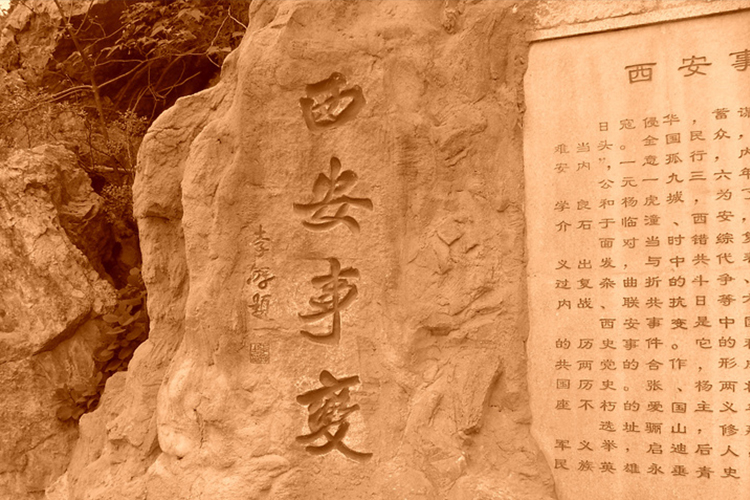 西安事变
西安事
日寇侵华，蓄谋
难当头，全国民众，内
安内”，一意孤行，
公元一九三六年
学良和杨虎城，为
介石于临潼、西安
面对当时错综复
义出发，与中共代表
过复杂、曲折的斗争
内战、联共抗日等
西安事变是中
的历史事件。它的
共两党合作，形
国历史的张、杨两
座不朽的爱国主义
选址骊山，修
军义举，启迪后人
民族英雄永垂青史